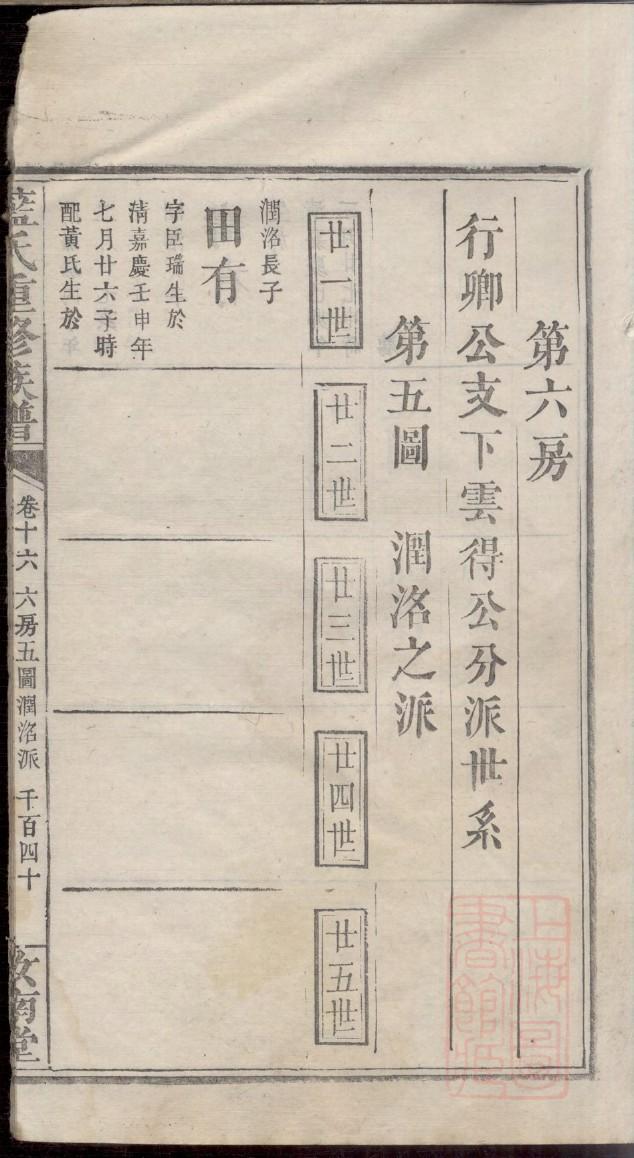 第六房
行卿公支下雲得公分派世系
第五圖 潤洛之派
廿一世
廿二世
廿三世
廿四世
廿五世
潤洛長子
田有
字臣瑞生於
淸嘉慶壬申年
七月廿六子時
配黃氏生於
藍氏重修族譜
卷十六 六房五圖潤洛派 千百四十
汝南堂
上海圖書館藏